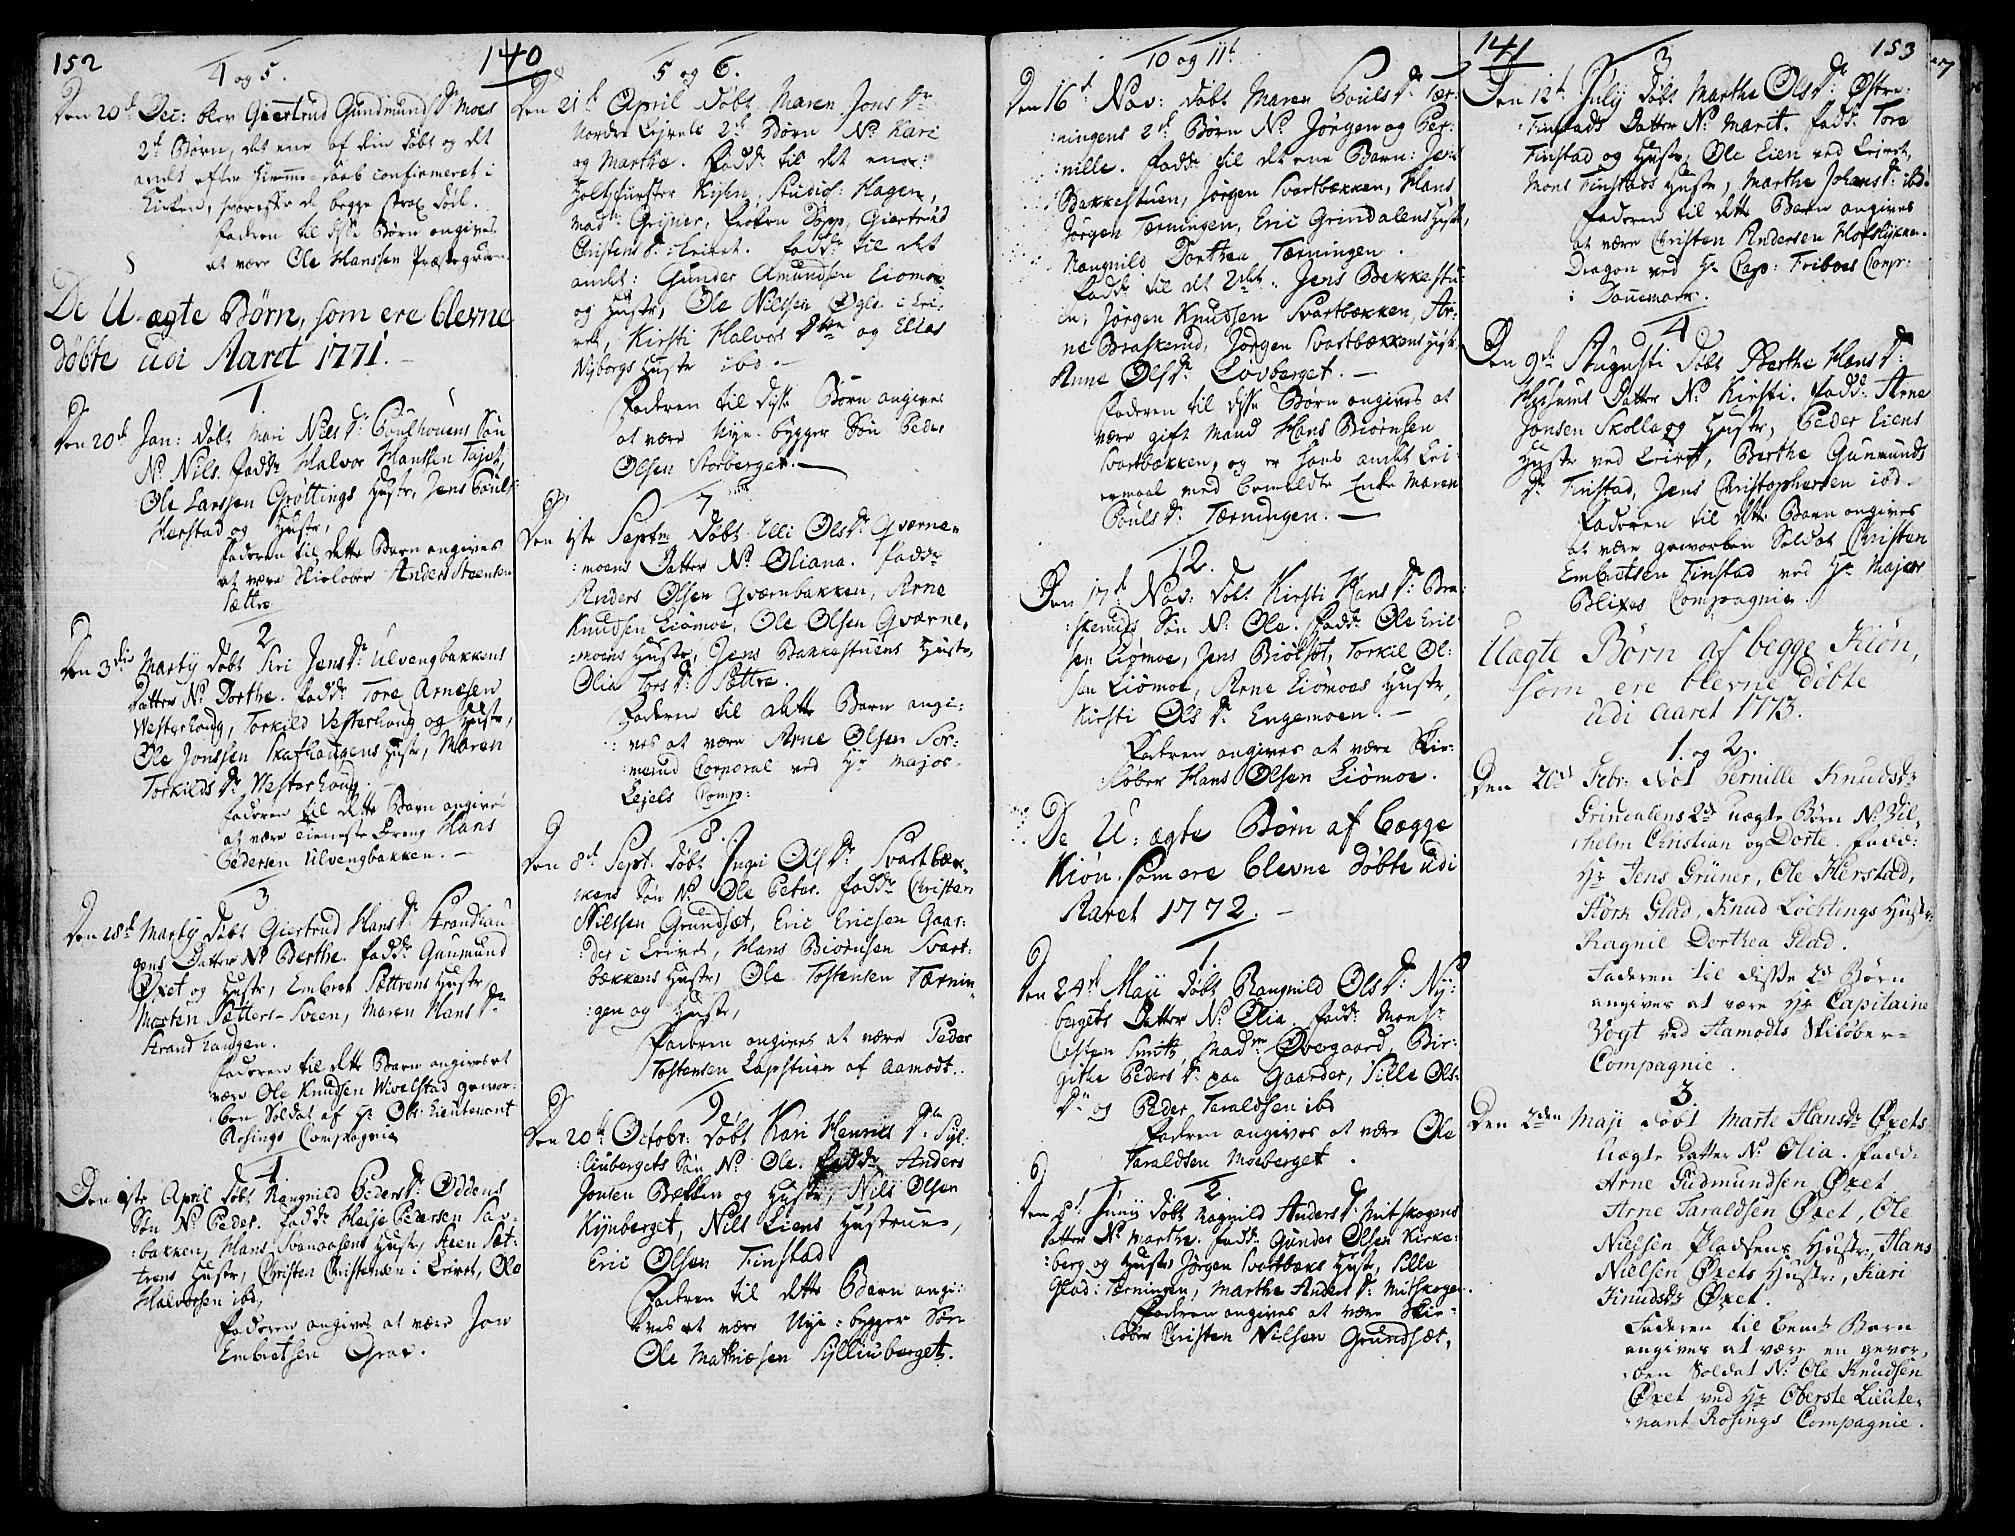 152
140
4 og 5.
Den 20de Dec: blev Giertrud Gundmunds Dr Moes
2de Børn, det ene af dem døbt og det
andet efter hiemme-daab confirmeret i
Kirken, hvorefter de begge strax døde.
Faderen til disse Børn angives
at være Ole Hanssen Præstegaarden
De U-ægte Børn, som ere blevne
døbte udi Aaret 1771.
1.
Den 20de Jan: døbt Mari Nils Dr Poulhouens Søn
No Nils. fadd: Halvor Hansen
Ole Larssen Grøttings Hustr, Jens Pouls:
Herstad og Hustr,
faderen til dette Barn angives
at være Skieløber Anders Steensen
Sættre
2
Den 3die Martÿ døbt Siri Jens Dr Ulvengbakkens
Datter No Dorthe. fadd: Tore Arnesen
Westerhaug, Torkild Vesterhaug og Hustr,
Ole Jonssen Skafhaugens Hustr, Maren
Torkilds Dr Westerhaug.
faderen til dette Barn angives
at være tieneste Dreng Hans
Pedersen Ulvengbakken.
3
Den 28de Martÿ døbt Giertrud Hans Dr Strandhau-
gens Datter No Berthe. fadd: Guumund
Øxet og Hustr, Embret Sættrens Hustr
Morten Sætters-Sveen, Maren Hans Dr
Strandhaugen.
faderen til dette Barn angives at
være Ole Knudsen Wivelstad gewor:
ben Soldat af Hr Ob: Lieutenant
Rosings Compagnie
4
Den 1ste April døbt Rangnild Peders Dr Oddens
Søn No Peder. fadd: Helje Pedersen Sav-
:bakken, Hans Svenaasens Hustr, Steen Sæt-
trens Hustr, Christen Christensen i Leiret, Ole
Halvorsen ibd,
faderen angives at være Jon
Embretsen Grav.
5 og 6.
Den 21de April døbt Maren Jons Dr
Nordre Leirets 2de Børn No Kari
og Marthe. Fadd: til det ene:
Holtzfurster Kyhn, Studios: Hagen,
Mad: Gripier, Froken Dopp, Giertrud
Christens Dr Leiret. fadd: til det
andet: Gunder Amundsen Liømoe
og Hustr, Ole Nilssen Øgle i Lei-
ret, Kirsti Halvors Dtr og Ellas
Nyborgs Hustr ibd.
Faderen til disse Børn angives
at være Nye-bygger Søn Peder
Olsen Storberget.
7
Den 1ste Septm døbt Elli Ols Dr Qværne-
:moens Datter No Oliana. fadd:
Anders Olsen Qværnbakken, Arne
Knudsen Liømoe, Ole Olsen Qværne-
:moens Hustr, Jens Bakkestuens Hustr,
Olia Tors Dr Sættre.
Faderen til dette Barn angi:
ves at være Arne Olsen Sor:
:merud Corporal ved Hr Major
Lejels Comp:
8.
Den 8de Sept. døbt Ingri Ols Dr Svartbæk-
kens Søn No Ole Peter. fadd: Christen
Nilssen Grundsæt, Eric Ericsen Gaar-
:der i Leiret, Hans Biørnsen Svart-
:bækkens Hustr, Ole Tostensen Tærnin-
:gen og Hustr,
Faderen angives at være Peder
Tostensen Lapstuen af Aamodt.
9
Den 20de Octobr: døbt Kari Henrics Dr Syl-
:liubergets Søn No Ole. fadd: Anders
Jonsen Bækken og Hustr, Nils Olsen
Kÿnberget, Nils Liens Hustrue,
Eric Olsen Finstad
Faderen til dette Barn angi:
:ves at være Nye-bygger Søn
Ole Mathiesen Sylliuberget.
141
153
10 og 11te
Den 16de Nov: døbt Maren Pouls Dr Tær:
:ningens 2de Børn No Jørgen og Per:
:nille. Fadd: til det ene Barn: Jens
Bakkestuen, Jørgen Svartbækken, Hans
Jørgen Tærningen, Eric Grindalens Hustr,
Rangnild Dorthea Tærningen.
Fadd: til det 2det: Jens Bekkestu
en, Jørgen Knudsen Svartbækken, Ar-
ne Braskerud, Jørgen Svartbækkens Hustr
Anne Ols Dr Lovberget.
Faderen til disse Børn angives at
være gift Mand Hans Biørnsen
Svartbækken, og er hans andet Lei-
ermaal med bemeldte Enke Maren
Pouls Dr Tærningen.
12.
Den 17de Nov: døbt Kirsti Hans Dr Bra:
:skeruds Søn No Ole. Fadd: Ole Eric-
sen Liømoe, Jens Biølset, Torkil Ol:
sen Liømoe, Arne Liømoes Hustr,
Kirsti Ols Dr Engemoen.
Faderen angives at være Skie-
:løber Hans Olsen Liømoe.
De U:ægte Børn af begge
Kiøn, som ere blevne døbte udi
Aaret 1772.
1.
Den 24de Maji døbt Rangnild Ols Dr Nÿ:
:bergets Datter No Olia. Fadd: Monsr
Casten Smitz, Madme Overgaard, Bir-
githe Peders Dr paa Gaarder, Sille Ols:
Dr og Peder Taraldsen ibd
Faderen angives at være Ole
Taraldsen Moeberget.
2
Den 8de Junÿ døbt Ragnild Anders Dr Mitskogens
Datter No Marthe. fadd: Gunder Olsen Kirke-
:berg og Hustr, Jørgen Svartbæks Hustr, Sille
Glad: Tærningen, Marthe Anders Dr Mitskogen.
Faderen angives at være Skie-
:løber Christen Nilsen Grundsæt.
3
Den 12de Julÿ døbt Marthe Ols Dr Østre-
:Finstads Datter No Marit. fadd: Tore
Finstad og Hustr, Ole Lien ved Leiret,
Mons Finstads Hustr, Marthe Johans Dr ibd.
Faderen til dette Barn angives
at være Christen Andersen Hofslykken.
Dragon ved Hr Cap: Friboes Comp:
i Dannemark.
4
Den 9de Augusti døbt Berthe Hans Dr
Husums Datter No Kirsti. fadd: Arne
Jonsen Skolla og Hustr, Peder Liens
Hustr ved Leiret, Berthe Gunmunds
Dr Finstad, Jens Christophersen ibd.
Faderen til dette Barn angives
at være geworben Soldat Christen
Embretsen Finstad ved Hr Major
Blixes Compagnie.
Uægte Børn af begge Kiøn,
som ere blevne døbte
Udi Aaret 1773.
1. og 2.
Den 20de Febr: døbt Pernille Knudsdr
Grindalens 2de uægte Børn No Vil-
:helm Christian og Dorte. Fadd:
Hr Jens Grüner, Ole Herstad,
Störk Glad, Knud Løchtings Hustr:
Ragnil Dorthea Glad.
Faderen til disse 2de Børn
angives at være Hr Capitaine
Vogt ved Aamodts Skiløber-
Compagnie.
3.
Den 2den Maji døbt Marte Hansdr Øxets
Uægte Datter No Olia. Fadd:
Arne Gudmundsen Øxet
Arne Taraldsen Øxet, Ole
Nielsen Pladsens Hustr, Hans
Nielsen Øxets Hustr:, Kari
Knudsdr Øxet.
Faderen til bemte Barn
angives at være en gevor-
:ben Soldat No Ole Knudsen
Øxet ved Hr Oberste Lieute-
:nant Rosings Compagnie.